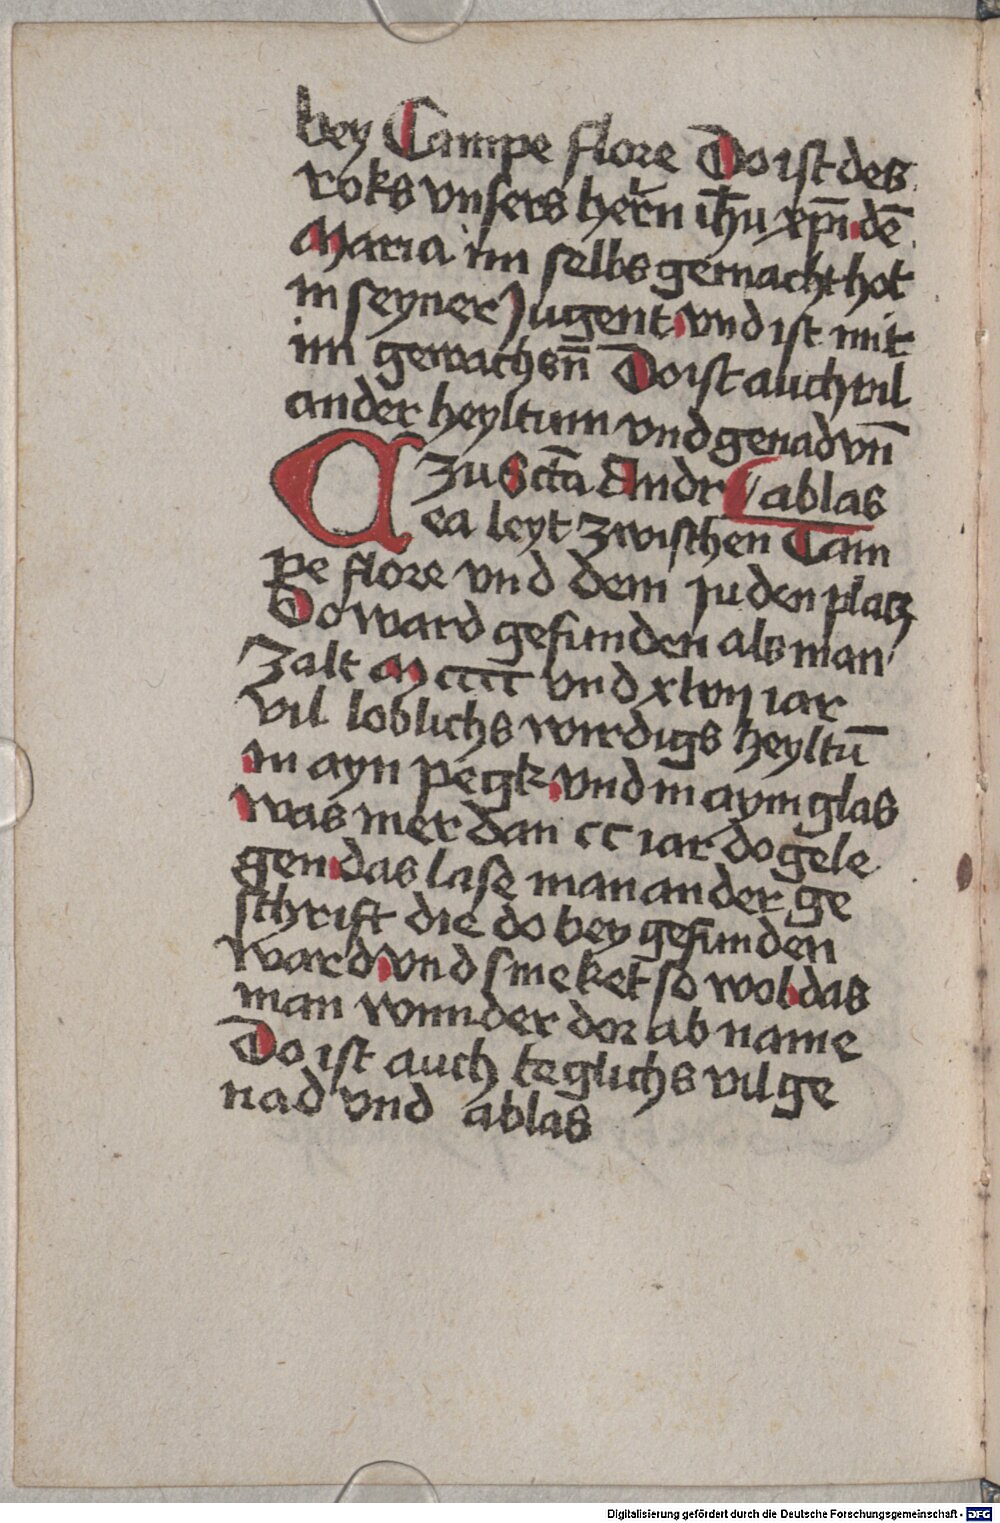 bey Campe flore Do ist des
roks vnsers herrn ihu xpi den̄
Maria im selbs gemacht hot
in seyner Jugent vnd ist mit
im gewachsen̄ Do ist auch vil
ander heyltum vnd genad vn̄
Zu Scta Andr ablas
ea leyt zwischen Cam
pe flore vnd dem juden platz
Do ward gefunden als man
Zalt M cccc vnd xlvij iar
vil loblichs wirdigs heyltū
in ayn pegk vnd in aym glas
was mer dan cc iar do gele
gen das lase man an der ge
schrift die do bey gefunden
ward vnd smeket so wol das
man wunder dor ab name
Do ist auch teglichs vil ge
nad vnd ablas
Digitalisierung gefördert durch die Deutsche Forschungsgemeinschaft - DFG